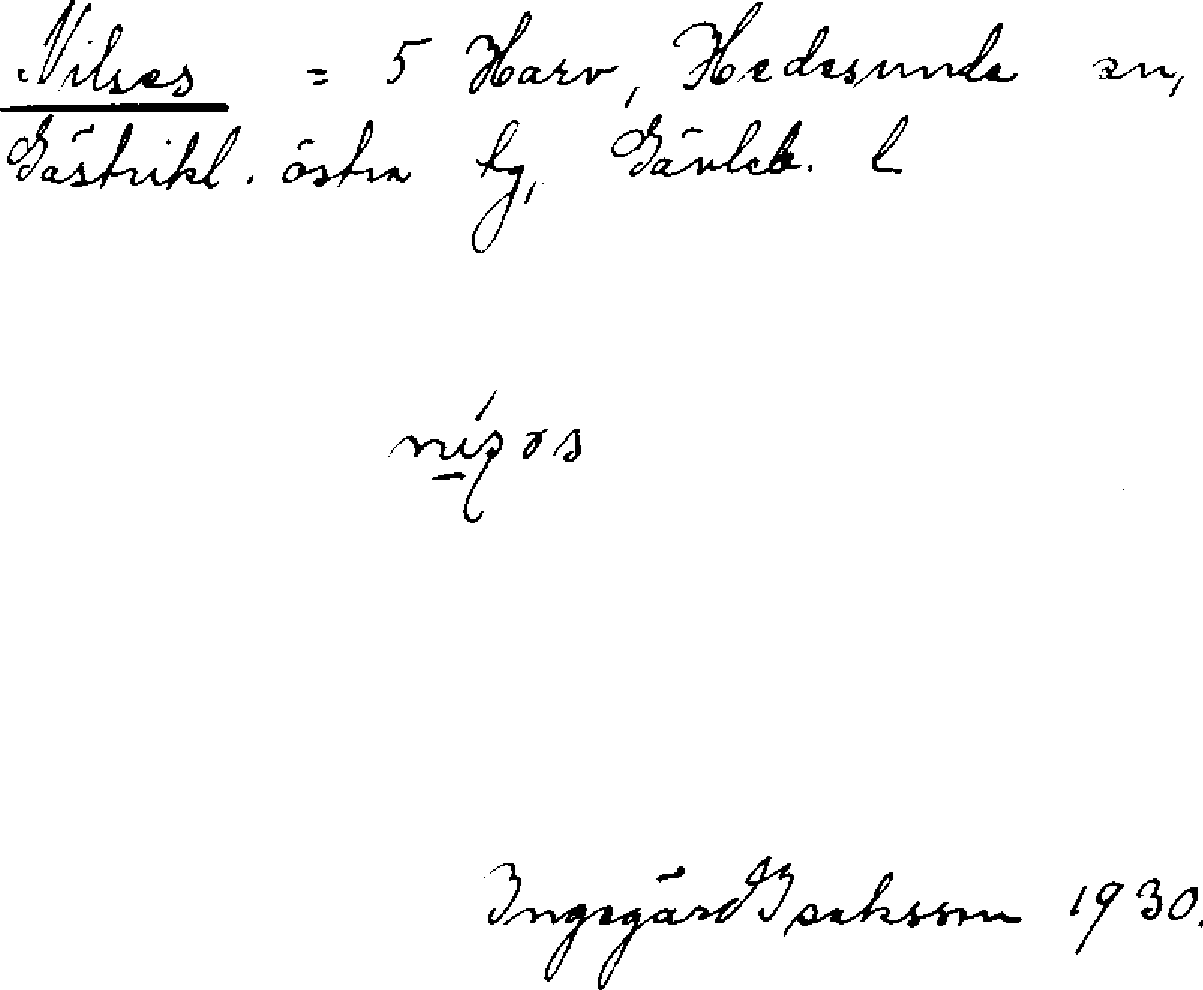 Nilses = 5 Harv, Hedesunda sn,
Gästrikl. östra tg, Gävleb. l
Ingegärd Isaksson 1930.